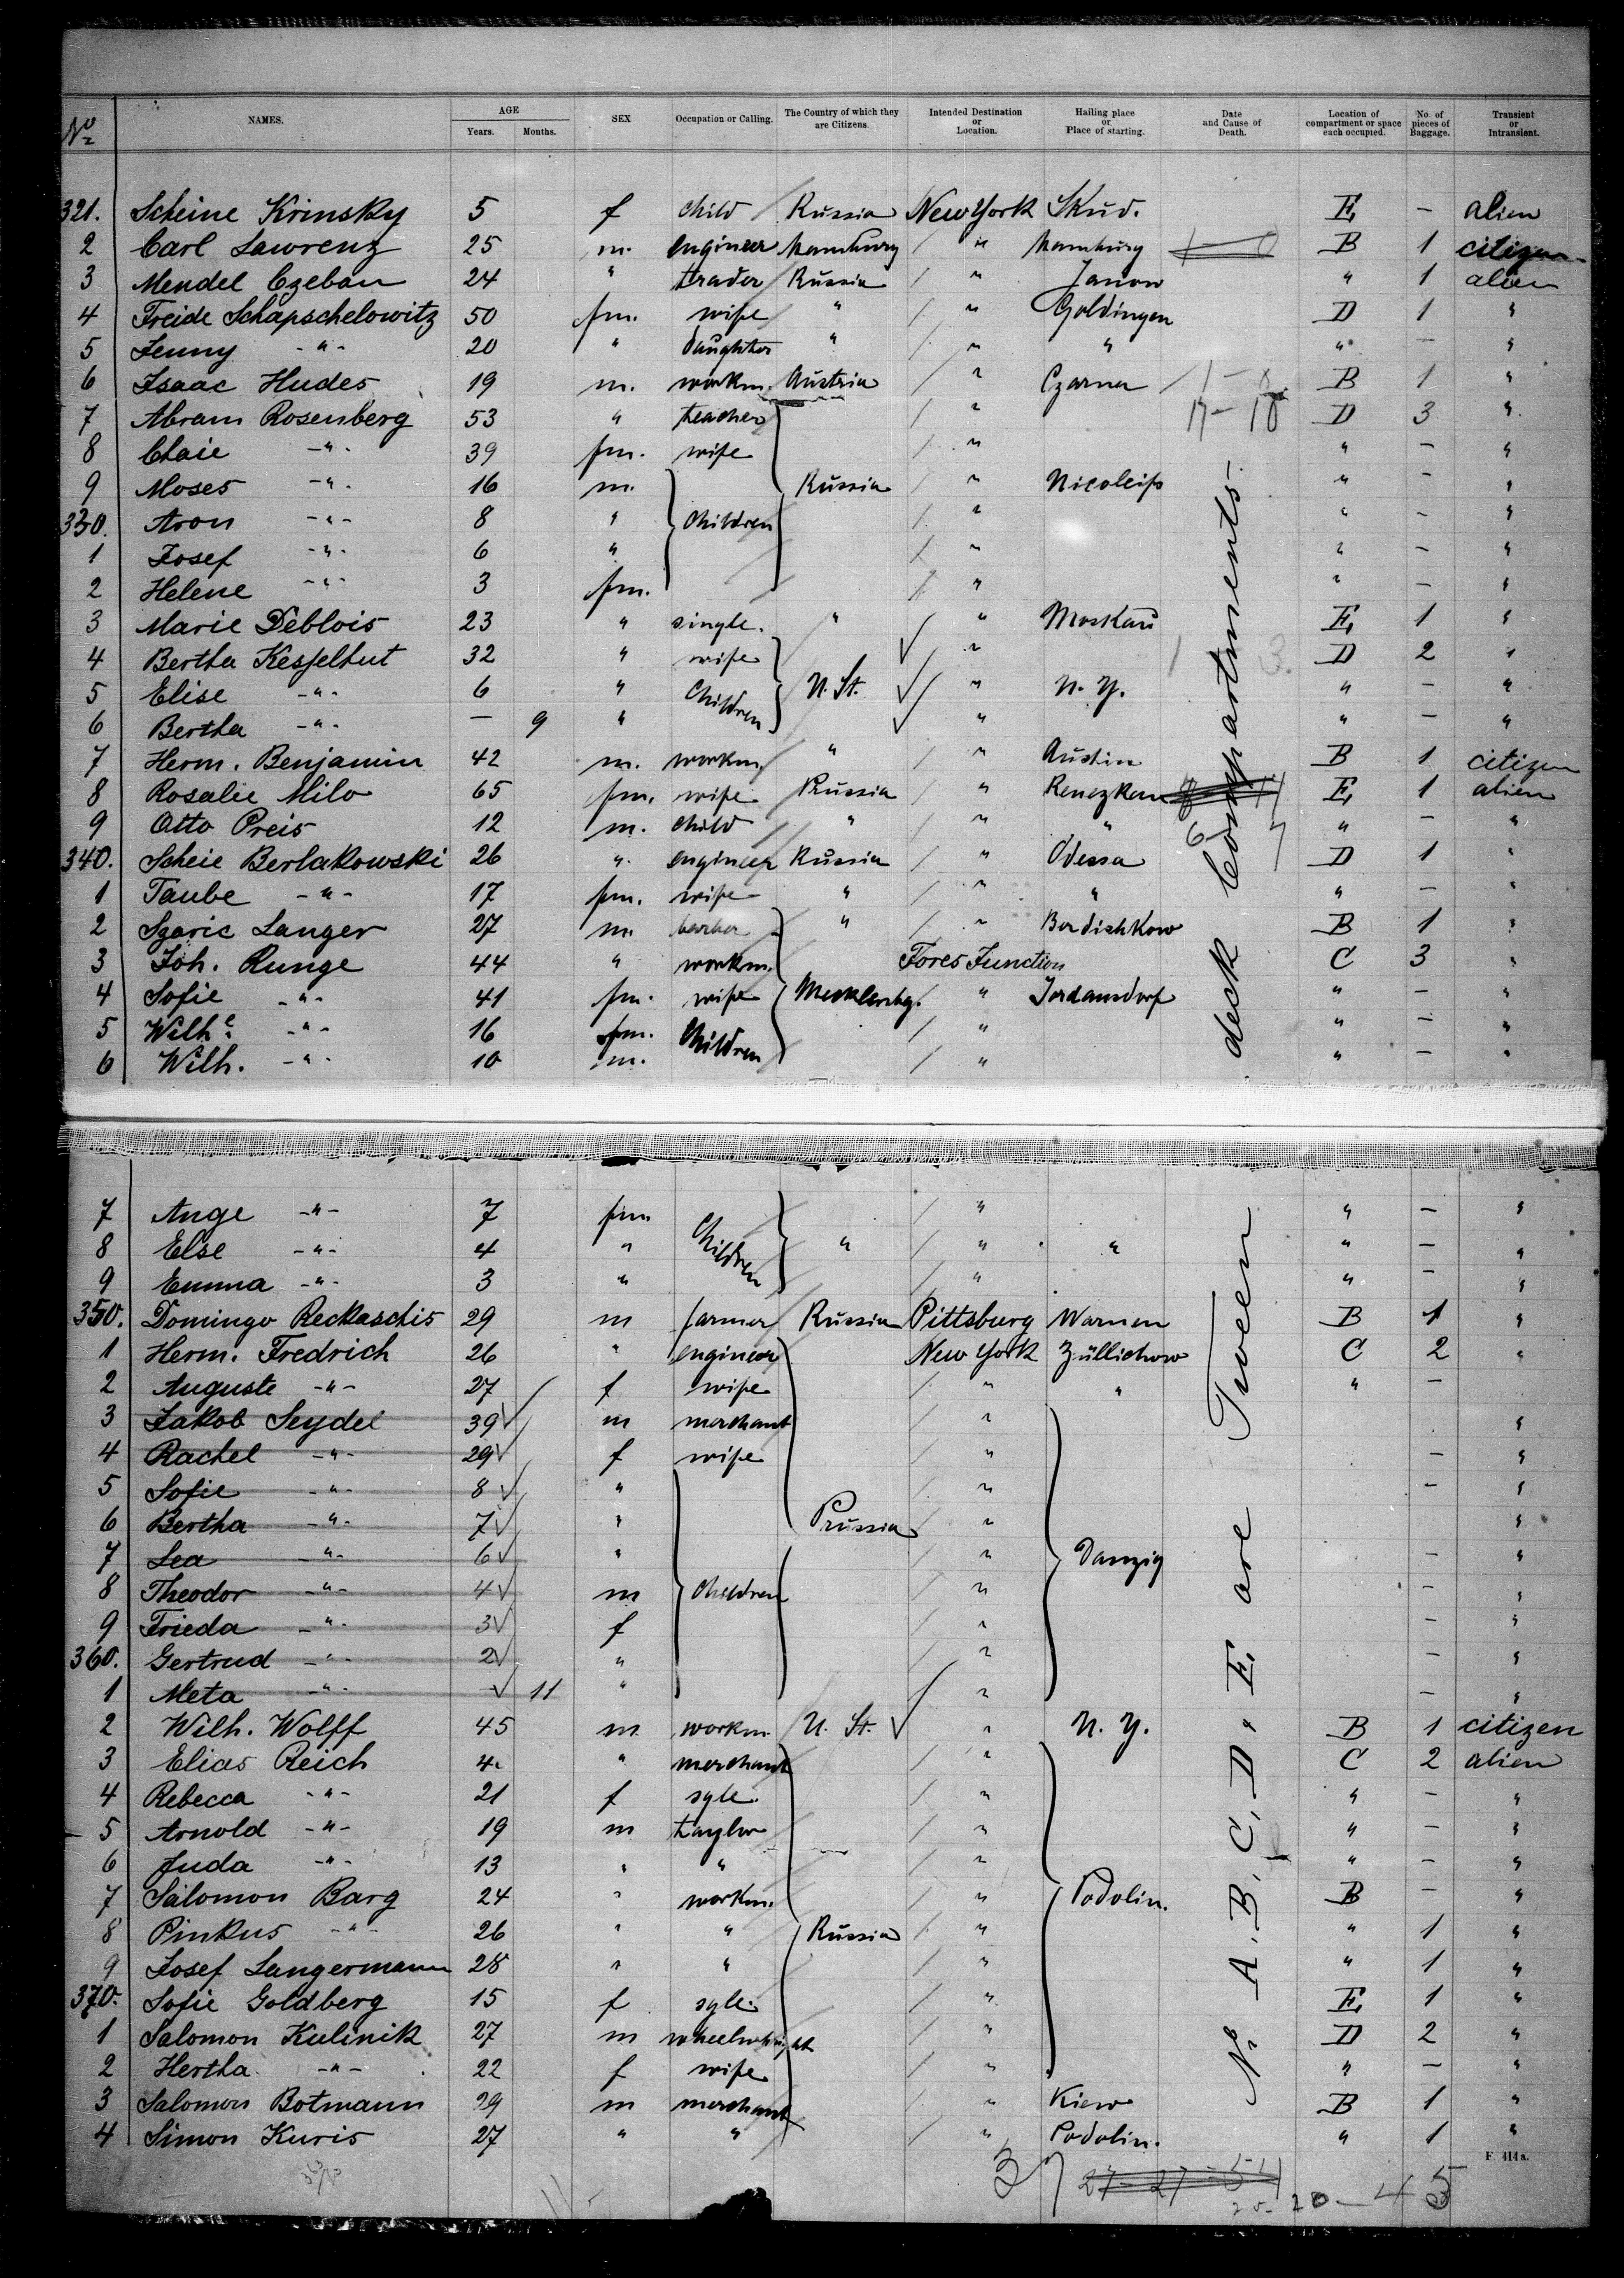 No NAMES. AGE Years. Months. SEX Occupation or Calling. The Country of which they are Citizens. Intended Destination or Location. Hailing place or Place of starting. Date and Cause of Death. Location of compartment or space each occupied. No. of pieces of Baggage. Transient or Intransient.
321. Scheine Krinsky 5 f child Russia New York Skud. E, – alien
2 Carl Lawrenz 25 m. engineer Hamburg / " Hamburg B 1 citizen
3 Mendel Czeban 24 " trader Russia / " Janow " 1 alien
4 Freide Schapschelowitz 50 fm. wife " / " Goldingen D 1 "
5 Jenny -"- 20 " daughter " / " " " – "
6 Isaac Hudes 19 m. workm. Austria / " Czarna B 1 "
7 Abram Rosenberg 53 " teacher / " D 3 "
8 Chaie -"- 39 fm. wife / " " – "
9 Moses -"- 16 m. Russia / " " – "
330. Aron -"- 8 " children / " " – "
1 Josef -"- 6 " / " " – "
2 Helene -"- 3 fm. / " " – "
3 Marie Deblois 23 " single. " / " Moskau E, 1 "
4 Bertha Kesselhut 32 " wife / " D 2 "
5 Elise -"- 6 " Children U. St. / " N. Y. " – "
6 Bertha -"- – 9 " / " " – "
7 Herm. Benjamin 42 m. workm. " / " Austin B 1 citizen
8 Rosalie Milo 65 fm. wife Russia / " E, 1 alien
9 Otto Preis 12 m. child " / " " " – "
340. Scheie Berlakowski 26 " engineer Russia / " Odessa D 1 "
1 Taube -"- 17 fm. wife " / " " " – "
2 Langer 27 m. barber " / " Berdishkow B 1 "
3 Joh. Runge 44 " workm. Fores Junction C 3 "
4 Sofie -"- 41 fm. wife Mecklenbg. " Jordansdorf " – "
5 Wilhe. -"- 16 fm. Children / " " – "
6 Wilh. -"- 10 m. / " " – "
7 Ange -"- 7 fm. / " " – "
8 Else -"- 4 " Children " / " " " – "
9 Emma -"- 3 " / " " – "
350. Domingo Reckaschis 29 m farmer Russia Pittsburg Warnen B 1 "
1 Herm. Fredrich 26 " engineer New York Züllichow C 2 "
2 Auguste -"- 27 f wife / " " " –
3 Jakob Seydel 39 m merchant / " "
4 Rachel -"- 29 f wife / " – "
5 Sofie -"- 8 " / " – "
6 Bertha -"- 7 " Prussia / " "
7 Lea -"- 6 " / " Danzig – "
8 Theodor -"- 4 m children / " – "
9 Frieda -"- 3 f / " – "
360. Gertrud -"- 2 " / " – "
1 Meta -"- 11 " / " – "
2 Wilh. Wolff 45 m workm. U. St. " N. Y. B 1 citizen
3 Elias Reich " merchant / " C 2 alien
4 Rebecca -"- 21 f sgle. / " " – "
5 Arnold -"- 19 m taylor / " " – "
6 Juda -"- 13 " " / " " – "
7 Salomon Barg 24 " workm. / " Podolin. B – "
8 Pinkus -"- 26 " " Russia / " " 1 "
9 Josef Langermann 28 " " / " " 1 "
370. Sofie Goldberg 15 f sgle. / " E, 1 "
1 Salomon Kulinik 27 m wheelwright / " D 2 "
2 Hertha -"- 22 f wife / " " – "
3 Salomon Botmann 29 m merchant / " Kiew B 1 "
4 Simon Kuris 27 " " / " Podolin. " 1 "
No A, B, C, D, E, are Tween deck Compartments
F 414a.
37 27 – 27 – 54
20 – 45